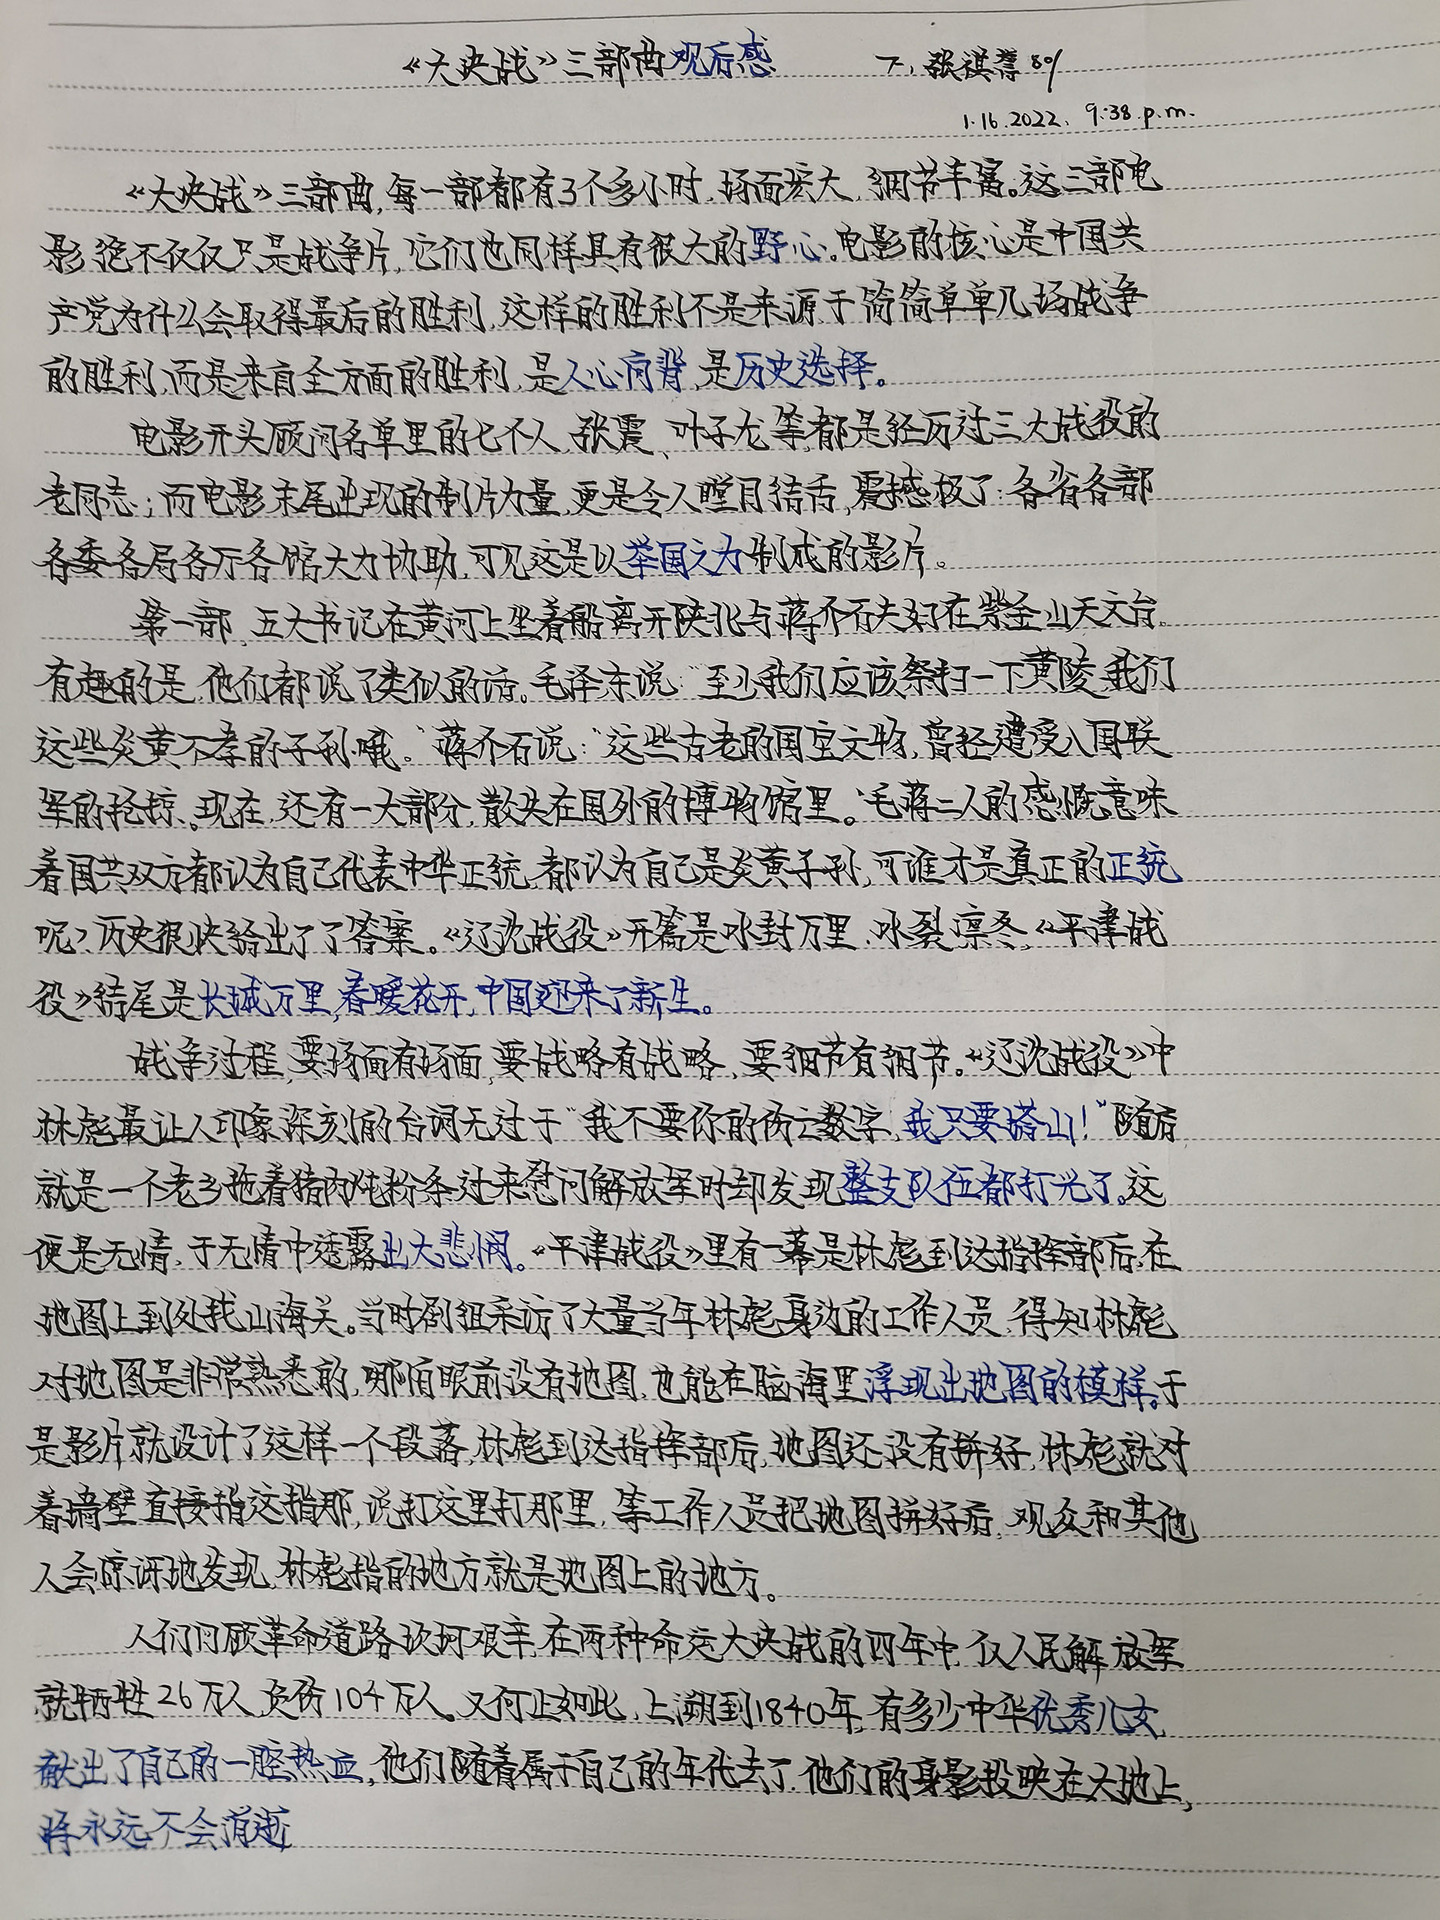 《大决战》三部曲观后感
1.16.2022. 9:38 p.m.
《大决战》三部曲,每一部都有3个多小时,场面宏大,细节丰富。这三部电
影绝不仅仅只是战争片,它们也同样具有很大的野心。电影的核心是中国共
产党为什么会取得最后的胜利,这样的胜利不是来源于简简单单几场战争
的胜利,而是来自全方面的胜利,是人心向背,是历史选择。
电影开头顾问名单里的七个人,张震、叶子龙等,都是经历过三大战役的
老同志;而电影末尾出现的制片力量,更是令人瞠目结舌,震撼极了:各省各部
各委各局各厅各馆大力协助,可见这是以举国之力制成的影片。
第一部,五大书记在黄河上坐着船离开陕北与蒋介石夫妇在紫金山天文台。
有趣的是,他们都说了类似的话。毛泽东说:“至少我们应该祭扫一下黄陵,我们
这些炎黄不孝的子孙哦。”蒋介石说:“这些古老的国宝文物,曾经遭受八国联
军的抢掠。现在,还有一大部分,散失在国外的博物馆里。”毛蒋二人的感慨意味
着国共双方都认为自己代表中华正统,都认为自己是炎黄子孙,可谁才是真正的正统
呢?历史很快给出了了答案。《辽沈战役》开篇是冰封万里,冰裂凛冬,《平津战
役》结尾是长城万里,春暖花开,中国迎来了新生。
战争过程,要场面有场面,要战略有战略,要细节有细节。《辽沈战役》中
林彪最让人印象深刻的台词无过于“我不要你的伤亡数字,我只要塔山!”随后
就是一个老乡拖着猪肉炖粉条过来慰问解放军时却发现整支队伍都打光了。这
便是无情,于无情中透露出大悲悯。《平津战役》里有一幕是林彪到达指挥部后,在
地图上到处找山海关。当时剧组采访了大量当年林彪身边的工作人员,得知林彪
对地图是非常熟悉的,哪怕眼前没有地图,也能在脑海里浮现出地图的模样。于
是影片就设计了这样一个段落,林彪到达指挥部后,地图还没有拼好,林彪就对
着墙壁直接指这指那,说打这里打那里,等工作人员把地图拼好后,观众和其他
人会惊讶地发现,林彪指的地方就是地图上的地方。
人们回顾革命道路坎坷艰辛,在两种命运大决战的四年中,仅人民解放军
就牺牲26万人,负伤104万人。又何止如此,上溯到1840年,有多少中华优秀儿女,
献出了自己的一腔热血,他们随着属于自己的年代去了,他们的身影投映在大地上,
将永远不会消逝